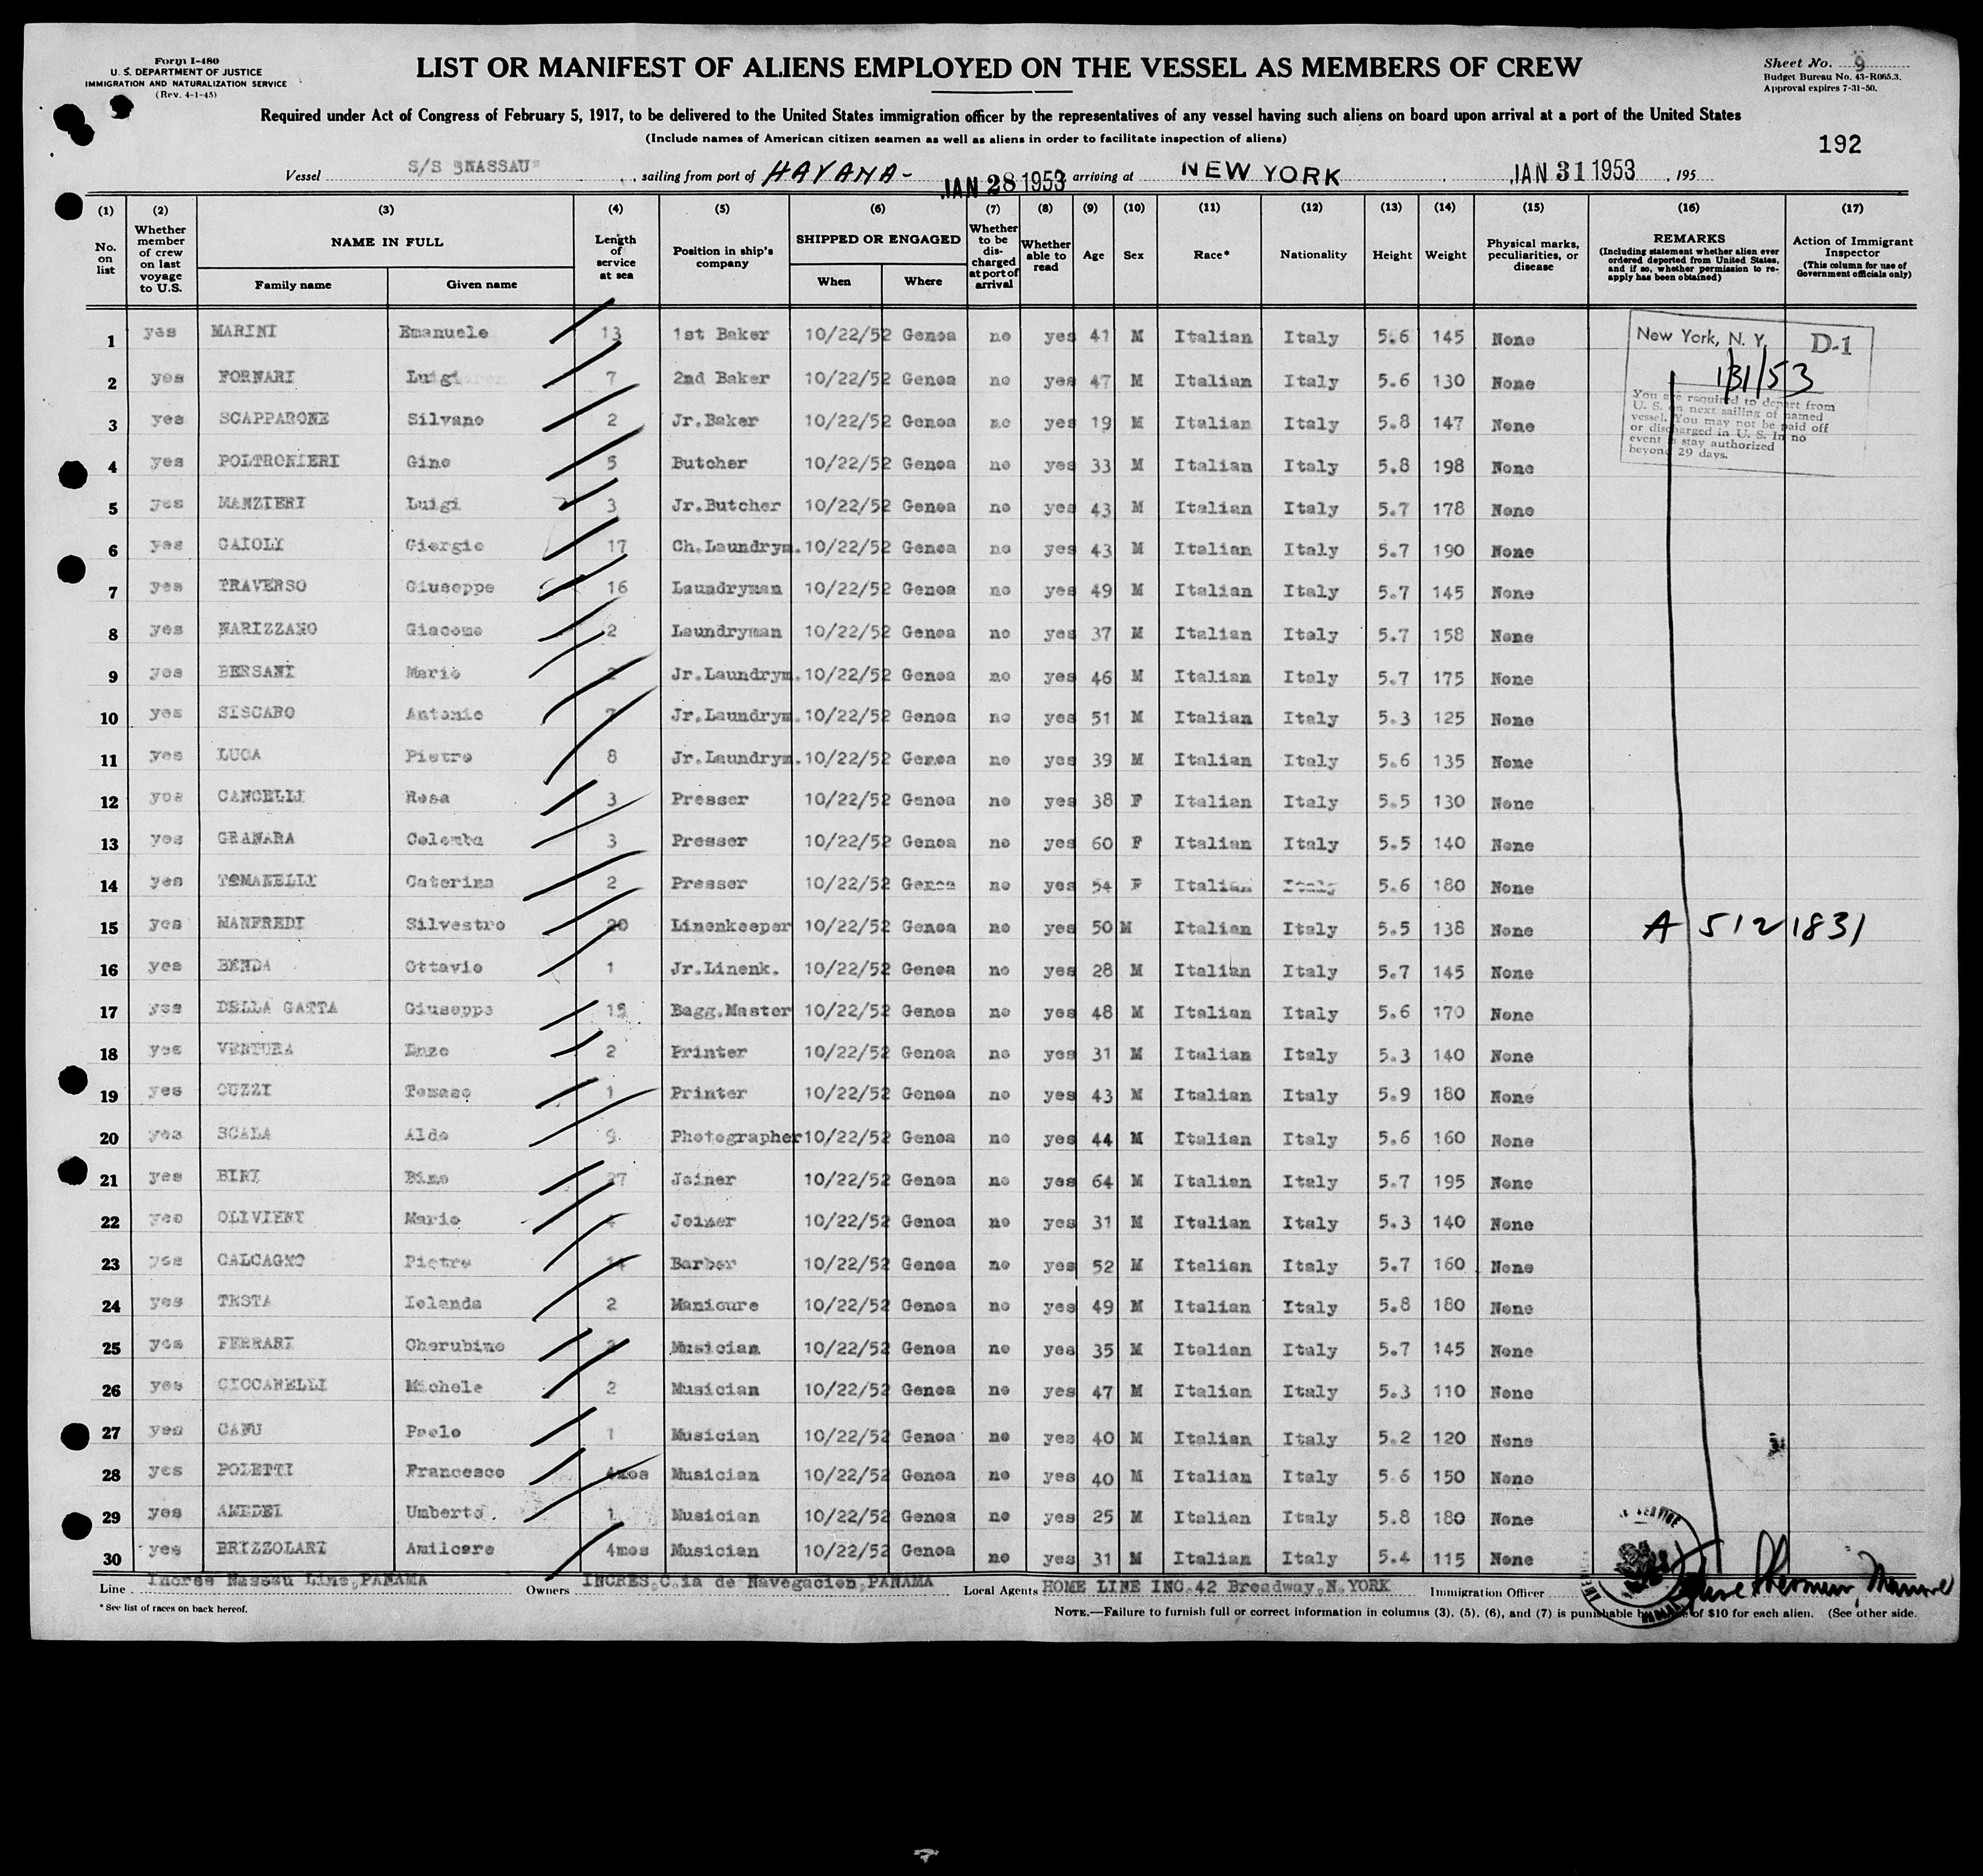 Form I-480
U. S. DEPARTMENT OF JUSTICE
IMMIGRATION AND NATURALIZATION SERVICE
(Rev. 4-1-45)
LIST OR MANIFEST OF ALIENS EMPLOYED ON THE VESSEL AS MEMBERS OF CREW
Sheet No. 9
Budget Bureau No. 43-R065.3.
Approval expires 7-31-50.
Required under Act of Congress of February 5, 1917, to be delivered to the United States immigration officer by the representatives of any vessel having such aliens on board upon arrival at a port of the United States
(Include names of American citizen seamen as well as aliens in order to facilitate inspection of aliens)
192
Vessel S/S "NASSAU", sailing from port of HAVANA- JAN 28 1953 arriving at NEW YORK, JAN 31 1953, 195
(1) (2) (3) (4) (5) (6) (7) (8) (9) (10) (11) (12) (13) (14) (15) (16) (17)
No. on list
Whether member of crew on last voyage to U.S.
NAME IN FULL
Family name Given name
Length of service at sea
Position in ship's company
SHIPPED OR ENGAGED
When Where
Whether to be discharged at port of arrival
Whether able to read
Age
Sex
Race*
Nationality
Height
Weight
Physical marks, peculiarities, or disease
REMARKS
(Including statement whether alien ever ordered deported from United States, and if so, whether permission to re-apply has been obtained)
Action of Immigrant Inspector
(This column for use of Government officials only)
1 yes MARINI Emanuele 13 1st Baker 10/22/52 Genoa no yes 41 M Italian Italy 5.6 145 None
2 yes FORNARI Luigi 7 2nd Baker 10/22/52 Genoa no yes 47 M Italian Italy 5.6 130 None
3 yes SCAPPARONE Silvano 2 Jr.Baker 10/22/52 Genoa no yes 19 M Italian Italy 5.8 147 None
4 yes POLTRONIERI Gino 5 Butcher 10/22/52 Genoa no yes 33 M Italian Italy 5.8 198 None
5 yes MANZIERI Luigi 3 Jr.Butcher 10/22/52 Genoa no yes 43 M Italian Italy 5.7 178 None
6 yes CAIOLY Giorgio 17 Ch.Laundrym. 10/22/52 Genoa no yes 43 M Italian Italy 5.7 190 None
7 yes TRAVERSO Giuseppe 16 Laundryman 10/22/52 Genoa no yes 49 M Italian Italy 5.7 145 None
8 yes NARIZZANO Giacomo 2 Laundryman 10/22/52 Genoa no yes 37 M Italian Italy 5.7 158 None
9 yes BERSANI Mario 2 Jr.Laundrym. 10/22/52 Genoa no yes 46 M Italian Italy 5.7 175 None
10 yes SISCARO Antonio 7 Jr.Laundrym. 10/22/52 Genoa no yes 51 M Italian Italy 5.3 125 None
11 yes LUCA Pietro 8 Jr.Laundrym. 10/22/52 Genoa no yes 39 M Italian Italy 5.6 135 None
12 yes CANCELLI Rosa 3 Presser 10/22/52 Genoa no yes 38 F Italian Italy 5.5 130 None
13 yes GRANARA Colomba 3 Presser 10/22/52 Genoa no yes 60 F Italian Italy 5.5 140 None
14 yes TOMANELLI Caterina 2 Presser 10/22/52 Genoa no yes 54 F Italian Italy 5.6 180 None
15 yes MANFREDI Silvestro 20 Linenkeeper 10/22/52 Genoa no yes 50 M Italian Italy 5.5 138 None A 5121831
16 yes BENDA Ottavio 1 Jr.Linenk. 10/22/52 Genoa no yes 28 M Italian Italy 5.7 145 None
17 yes DELLA GATTA Giuseppe 15 Bagg.Master 10/22/52 Genoa no yes 48 M Italian Italy 5.6 170 None
18 yes VENTURA Enzo 2 Printer 10/22/52 Genoa no yes 31 M Italian Italy 5.3 140 None
19 yes OUZZI Tomaso 1 Printer 10/22/52 Genoa no yes 43 M Italian Italy 5.9 180 None
20 yes SCALA Aldo 9 Photographer 10/22/52 Genoa no yes 44 M Italian Italy 5.6 160 None
21 yes BIRI Bino 27 Joiner 10/22/52 Genoa no yes 64 M Italian Italy 5.7 195 None
22 yes OLIVIERI Mario Joiner 10/22/52 Genoa no yes 31 M Italian Italy 5.3 140 None
23 yes CALCAGNO Pietro 14 Barber 10/22/52 Genoa no yes 52 M Italian Italy 5.7 160 None
24 yes TESTA Iolanda 2 Manicure 10/22/52 Genoa no yes 49 M Italian Italy 5.8 180 None
25 yes FERRARI Cherubino Musician 10/22/52 Genoa no yes 35 M Italian Italy 5.7 145 None
26 yes CICCARELLI Michele 2 Musician 10/22/52 Genoa no yes 47 M Italian Italy 5.3 110 None
27 yes CANU Paolo 1 Musician 10/22/52 Genoa no yes 40 M Italian Italy 5.2 120 None
28 yes POLETTI Francesco 4mos Musician 10/22/52 Genoa no yes 40 M Italian Italy 5 6 150 None
29 yes AMEDEI Umberto 1 Musician 10/22/52 Genoa no yes 25 M Italian Italy 5.8 180 None
30 yes BRIZZOLARI Amilcare 4mos Musician 10/22/52 Genoa no yes 31 M Italian Italy 5.4 115 None
New York, N. Y. D-1
1/31/53
You are required to depart from
U. S. on next sailing of named
vessel. You may not be paid off
or discharged in U. S. In no
event is stay authorized
beyond 29 days.
Line Incres Nassau Line, PANAMA Owners INCRES, C.ia de Navegacion, PANAMA Local Agents HOME LINE INC. 42 Broadway, N. YORK Immigration Officer
* See list of races on back hereof.
NOTE.—Failure to furnish full or correct information in columns (3), (5), (6), and (7) is punishable by of $10 for each alien. (See other side.